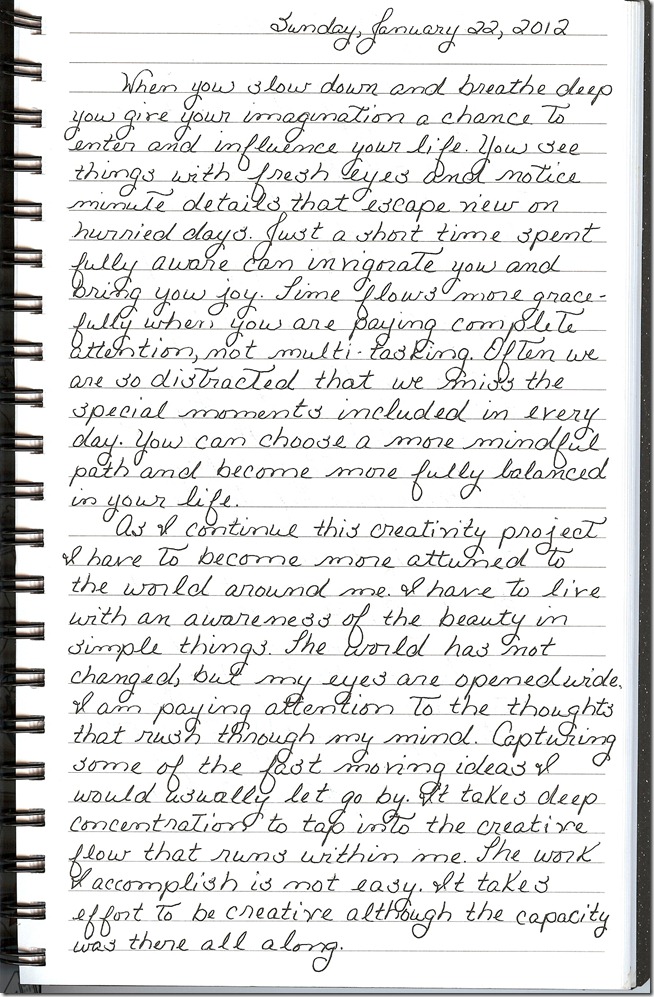 Sunday, January 22, 2012
When you slow down and breathe deep
you give your imagination a chance to
enter and influence your life. You see
things with fresh eyes and notice
minute details that escape view on
hurried days. Just a short time spent
fully aware can invigorate you and
bring you joy. Time flows more grace-
fully when you are paying complete
attention, not multi-tasking. Often we
are so distracted that we miss the
special moments included in every
day. You can choose a more mindful
path and become more fully balanced
in your life.
As I continue this creativity project
I have to become more attuned to
the world around me. I have to live
with an awareness of the beauty in
simple things. The world has not
changed, but my eyes are opened wide.
I am paying attention to the thoughts
that rush through my mind. Capturing
some of the fast moving ideas I
would usually let go by. It takes deep
concentration to tap into the creative
flow that runs within me. The work
I accomplish is not easy. It takes
effort to be creative although the capacity
was there all along.